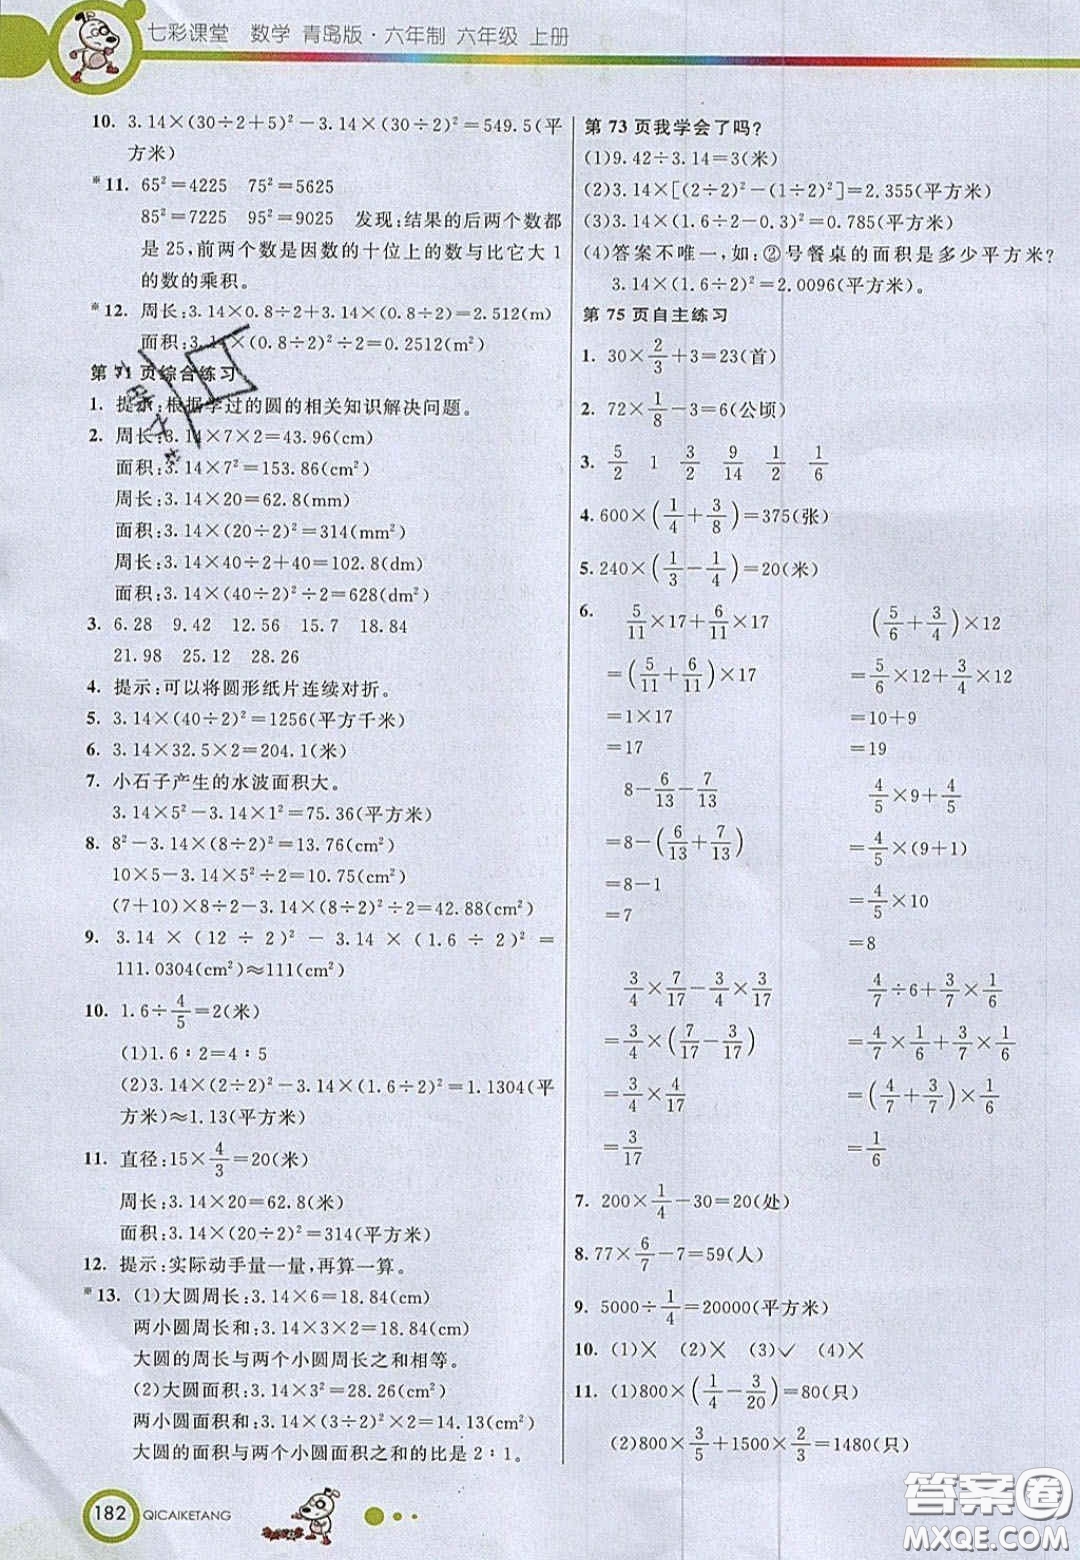 七彩课堂 数学 青岛版·六年制 六年级 上册
10. 3.14×(30÷2+5)²-3.14×(30÷2)²=549.5(平
方米)
*11. 65²=4225 75²=5625
85²=7225 95²=9025 发现:结果的后两个数都
是25,前两个数是因数的十位上的数与比它大1
的数的乘积。
*12. 周长:3.14×0.8÷2+3.14×0.4÷2×2=2.512(m)
面积:3.14×(0.8÷2)²÷2=0.2512(m²)
第71页综合练习
1. 提示:根据学过的圆的相关知识解决问题。
2. 周长:3.14×7×2=43.96(cm)
面积:3.14×7²=153.86(cm²)
周长:3.14×20=62.8(mm)
面积:3.14×(20÷2)²=314(mm²)
周长:3.14×40÷2+40=102.8(dm)
面积:3.14×(40÷2)²÷2=628(dm²)
3. 6.28 9.42 12.56 15.7 18.84
21.98 25.12 28.26
4. 提示:可以将圆形纸片连续对折。
5. 3.14×(40÷2)²=1256(平方千米)
6. 3.14×32.5×2=204.1(米)
7. 小石子产生的水波面积大。
3.14×5²-3.14×1²=75.36(平方米)
8. 8²-3.14×(8÷2)²=13.76(cm²)
10×5-3.14×(10÷2)²÷2=10.75(cm²)
(7+10)×8÷2-3.14×(8÷2)²÷2=42.88(cm²)
9. 3.14×(12÷2)²-3.14×(1.6÷2)²=
111.0304(cm²)≈111(cm²)
10. 1.6÷4/5=2(米)
(1)1.6∶2=4∶5
(2)3.14×(2÷2)²-3.14×(1.6÷2)²=1.1304(平
方米)≈1.13(平方米)
11. 直径:15×4/3=20(米)
周长:3.14×20=62.8(米)
面积:3.14×(20÷2)²=314(平方米)
12. 提示:实际动手量一量,再算一算。
*13. (1)大圆周长:3.14×6=18.84(cm)
两小圆周长和:3.14×3×2=18.84(cm)
大圆的周长与两个小圆周长之和相等。
(2)大圆面积:3.14×3²=28.26(cm²)
两小圆面积和:3.14×(3÷2)²×2=14.13(cm²)
大圆的面积与两个小圆面积之和的比是2∶1。
182 QICAIKETANG
第73页我学会了吗?
(1)9.42÷3.14=3(米)
(2)3.14×[(2÷2)²-(1÷2)²]=2.355(平方米)
(3)3.14×(1.6÷2-0.3)²=0.785(平方米)
(4)答案不唯一,如:②号餐桌的面积是多少平方米?
3.14×(1.6÷2)²=2.0096(平方米)。
第75页自主练习
1. 30×2/3+3=23(首)
2. 72×1/8-3=6(公顷)
3. 5/2 1 3/2 9/14 1/2 1/6
4. 600×(1/4+3/8)=375(张)
5. 240×(1/3-1/4)=20(米)
6. 5/11×17+6/11×17 (5/6+3/4)×12
=(5/11+6/11)×17 =5/6×12+3/4×12
=1×17 =10+9
=17 =19
8-6/13-7/13 4/5×9+4/5
=8-(6/13+7/13) =4/5×(9+1)
=8-1 =4/5×10
=7 =8
3/4×7/17-3/4×3/17 4/7÷6+3/7×1/6
=3/4×(7/17-3/17) =4/7×1/6+3/7×1/6
=3/4×4/17 =(4/7+3/7)×1/6
=3/17 =1/6
7. 200×1/4-30=20(处)
8. 77×6/7-7=59(人)
9. 5000÷1/4=20000(平方米)
10. (1)× (2)× (3)✓ (4)×
11. (1)800×(1/4-3/20)=80(只)
(2)800×3/5+1500×2/3=1480(只)
答案圈
MXQE.COM